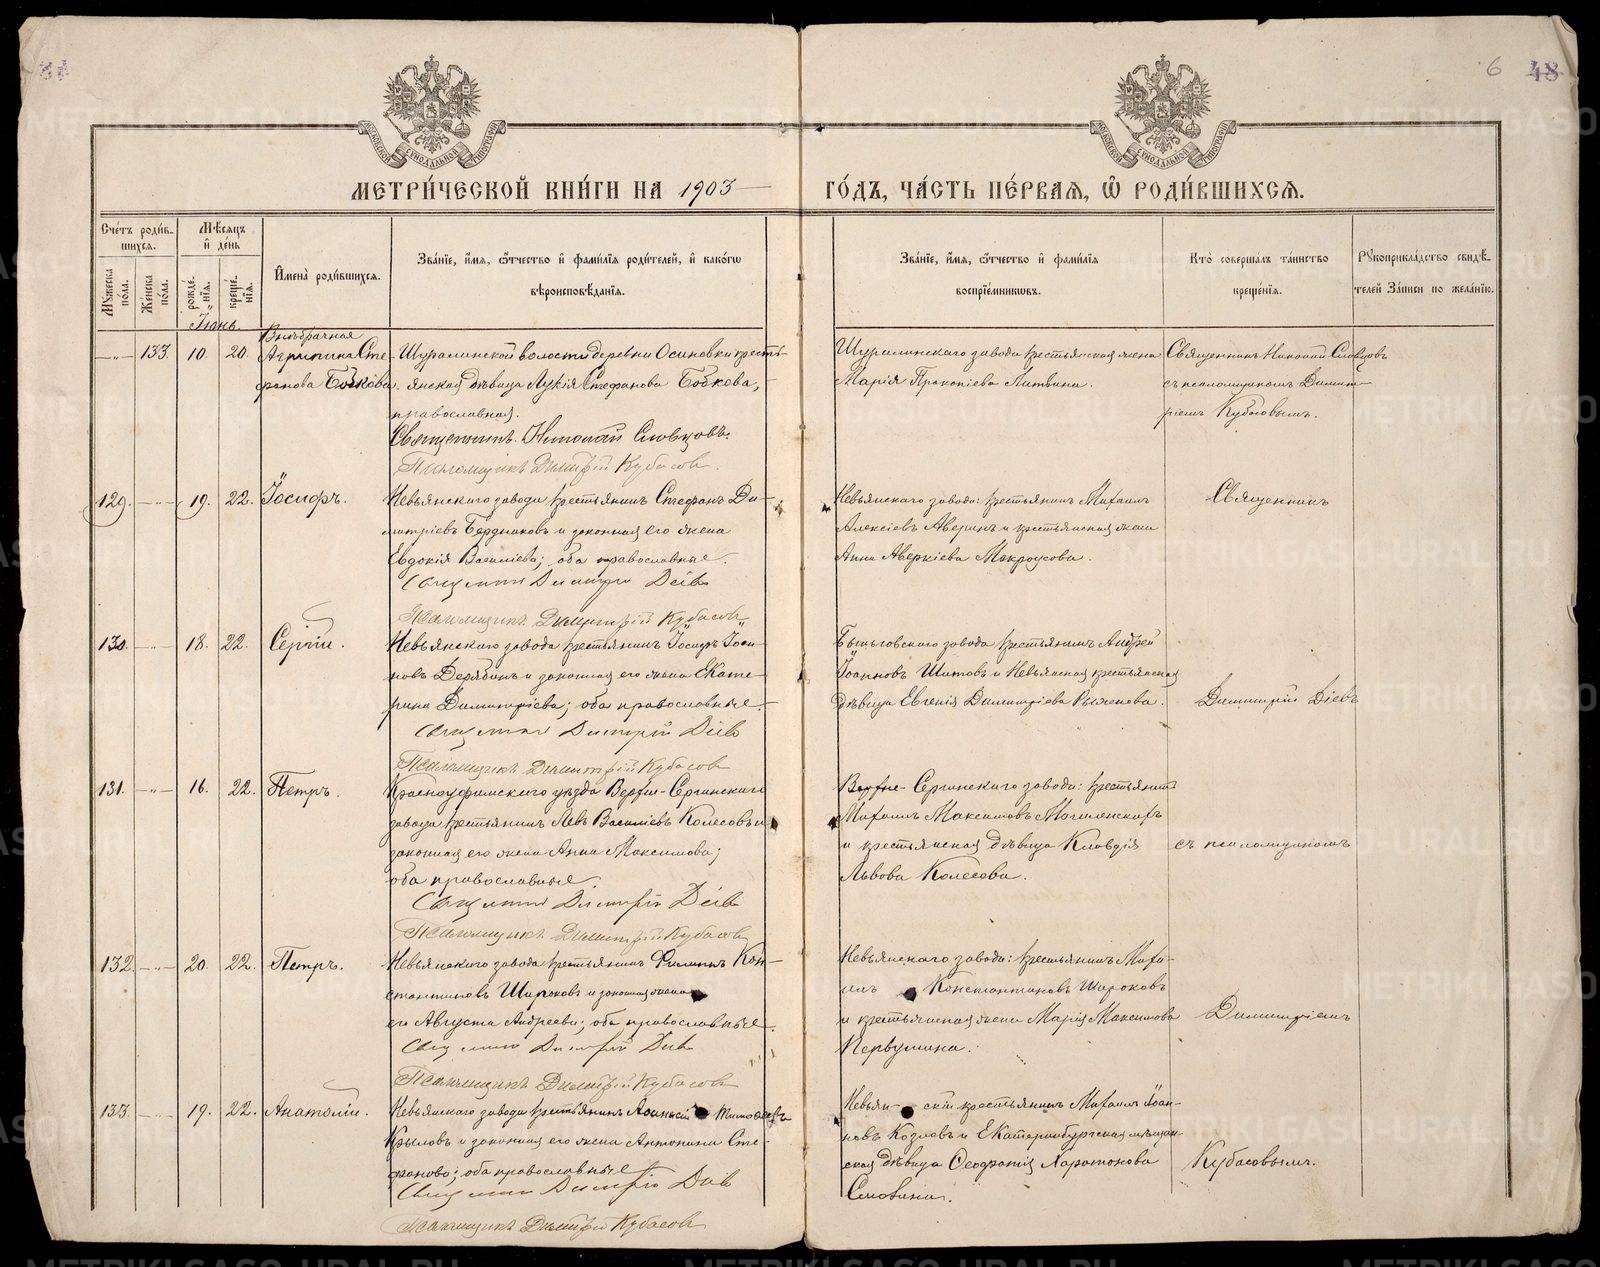 6 48
МЕТРИ́ЧЕСКОЙ КНИ́ГИ НА 1903
ГО́ДЪ, ЧА́СТЬ ПЕ́РВАЯ, Ѿ РОДИ́ВШИХСЯ.
Сче́тъ роди́вшихся.
Мꙋ́жеска по́ла.
Же́нска по́ла.
Мѣ́сяцъ и҆ де́нь
рожде́нїя.
креще́нїя.
И҆мена̀ роди́вшихся.
Зва́нїе, и҆́мя, ѻ҆́тчество и҆ фами́лїя роди́телей, и҆ како́гѡ
вѣроисповѣ́данїя.
Зва́нїе, и҆́мя, ѻ҆́тчество и҆ фами́лїя
воспрїе́мникѡвъ.
Кто̀ соверша́лъ та́инство
креще́нїя.
Рꙋкоприкла́дство свидѣ́телей за́писи по жела́нїю.
Іюнь.
133. 10. 20.
Внѣбрачная
Агрипина Сте-
фанова Бобкова.
Шуралинской волости деревни Осиновки кресть-
янская дѣвица Лукія Стефанова Бобкова,
православная.
Священникъ Николай Словцовъ.
Псаломщикъ Димитрій Кубасовъ.
Шуралинскаго завода крестьянская жена
Марія Прокопіева Литвина.
Священникъ Николай Словцовъ
съ псаломщикомъ Димит-
ріемъ Кубасовымъ.
129. 19. 22. Іосифъ.
Невьянскаго завода крестьянинъ Стефанъ Ди-
митріевъ Бердниковъ и законная его жена
Евдокія Василіева; оба православные.
Священникъ Димитрій Діевъ
Псаломщикъ Димитрій Кубасовъ
Невьянскаго завода: крестьянинъ Михаилъ
Алексіевъ Аверинъ и крестьянская жена
Анна Аверкіева Мокроусова.
Священникъ
130. 18. 22. Сергій.
Невьянскаго завода крестьянинъ Іосифъ Іоан-
новъ Дерябинъ и законная его жена Екате-
рина Димитріева; оба православные.
Священникъ Димитрій Діевъ
Псаломщикъ Димитрій Кубасовъ
Быньговскаго завода крестьянинъ Андрей
Іоанновъ Шитовъ и Невьянская крестьянская
дѣвица Евгенія Димитріева
Димитрій Діевъ
131. 16. 22. Петръ.
Красноуфимскаго уѣзда Верхне-Сергинскаго
завода крестьянинъ Левъ Василіевъ Колесовъ и
законная его жена Анна Максимова;
оба православные.
Священникъ Димитрій Діевъ
Псаломщикъ Димитрій Кубасовъ
Верхне-Сергинскаго завода: крестьянинъ
Михаилъ Максимовъ
и крестьянская дѣвица Клавдія
Львова Колесова.
съ псаломщикомъ
132. 20. 22. Петръ.
Невьянскаго завода крестьянинъ Филиппъ Кон-
стантиновъ Широковъ и законная жена
его Августа Андреева; оба православные.
Священникъ Димитрій Діевъ
Псаломщикъ Димитрій Кубасовъ
Невьянскаго завода: крестьянинъ Миха-
илъ Константиновъ Широковъ
и крестьянская жена Марія Максимова
Первушина.
Димитріемъ
133. 19. 22. Анатолій.
Невьянскаго завода крестьянинъ Тимофеевъ
Крыловъ и законная его жена Антонина Сте-
фанова; оба православные
Священникъ Димитрій Діевъ
Псаломщикъ Димитрій Кубасовъ
Невьянскій крестьянинъ Михаилъ Іоан-
новъ Козловъ и Екатеринбургская мѣщан-
ская дѣвица Харитонова
Кубасовымъ.